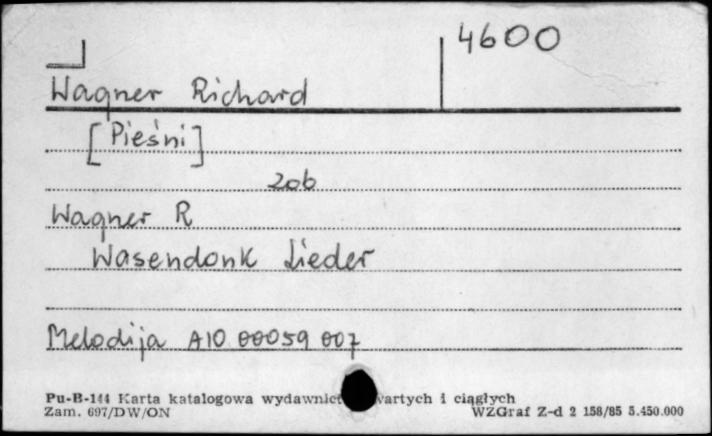 4600
Wagner Richard
[Pieśni]
zob
Wagner R
Wasendonk Lieder
Melodija A10 00059 007
Pu-B-144 Karta katalogowa wydawnict wartych i ciągłych
Zam. 697/DW/ON WZGraf Z-d 2 158/85 5.450.000